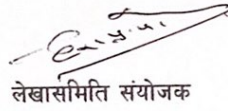 लेखासमिति संयोजक